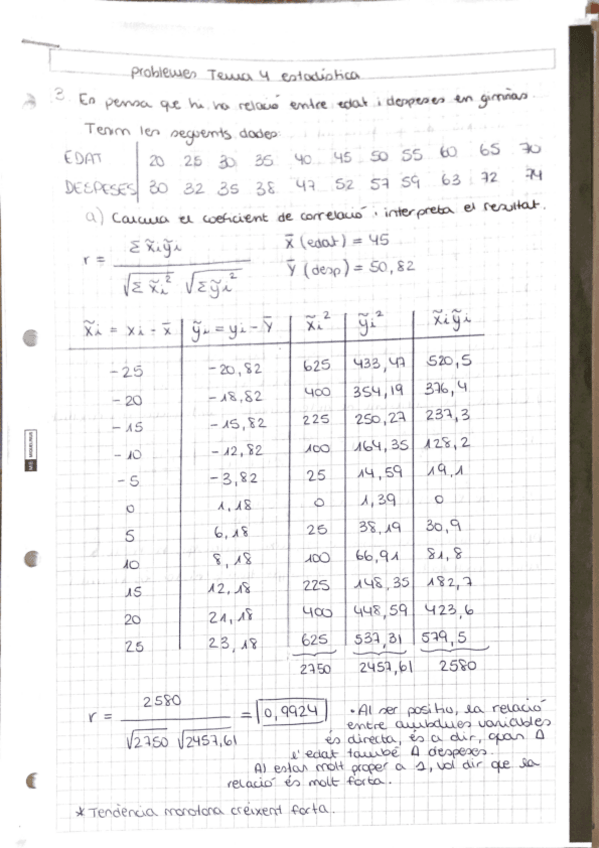 Problemes Tema 4 estadística
3. Es pensa que hi ha relació entre edat i despeses en gimnàs.
Tenim les seguents dades:
EDAT 20 25 30 35 40 45 50 55 60 65 70
DESPESES 30 32 35 38 47 52 57 59 63 72 74
a) Calcula el coeficient de correlació i interpreta el resultat.
r = Σ x̃i ỹi / √Σ x̃i² √Σ ỹi²
x̄ (edat) = 45
ȳ (desp) = 50,82
x̃i = xi - x̄ ỹi = yi - ȳ x̃i² ỹi² x̃i ỹi
-25 -20,82 625 433,47 520,5
-20 -18,82 400 354,19 376,4
-15 -15,82 225 250,27 237,3
-10 -12,82 100 164,35 128,2
-5 -3,82 25 14,59 19,1
0 1,18 0 1,39 0
5 6,18 25 38,19 30,9
10 8,18 100 66,91 81,8
15 12,18 225 148,35 182,7
20 21,18 400 448,59 423,6
25 23,18 625 537,31 579,5
2750 2457,61 2580
r = 2580 / √2750 √2457,61 = 0,9924
• Al ser positiu, la relació
entre ambdues variables
és directa, és a dir, quan Δ
l'edat també Δ despeses.
Al estar molt proper a 1, vol dir que la
relació és molt forta.
* Tendència monotona creixent forta.